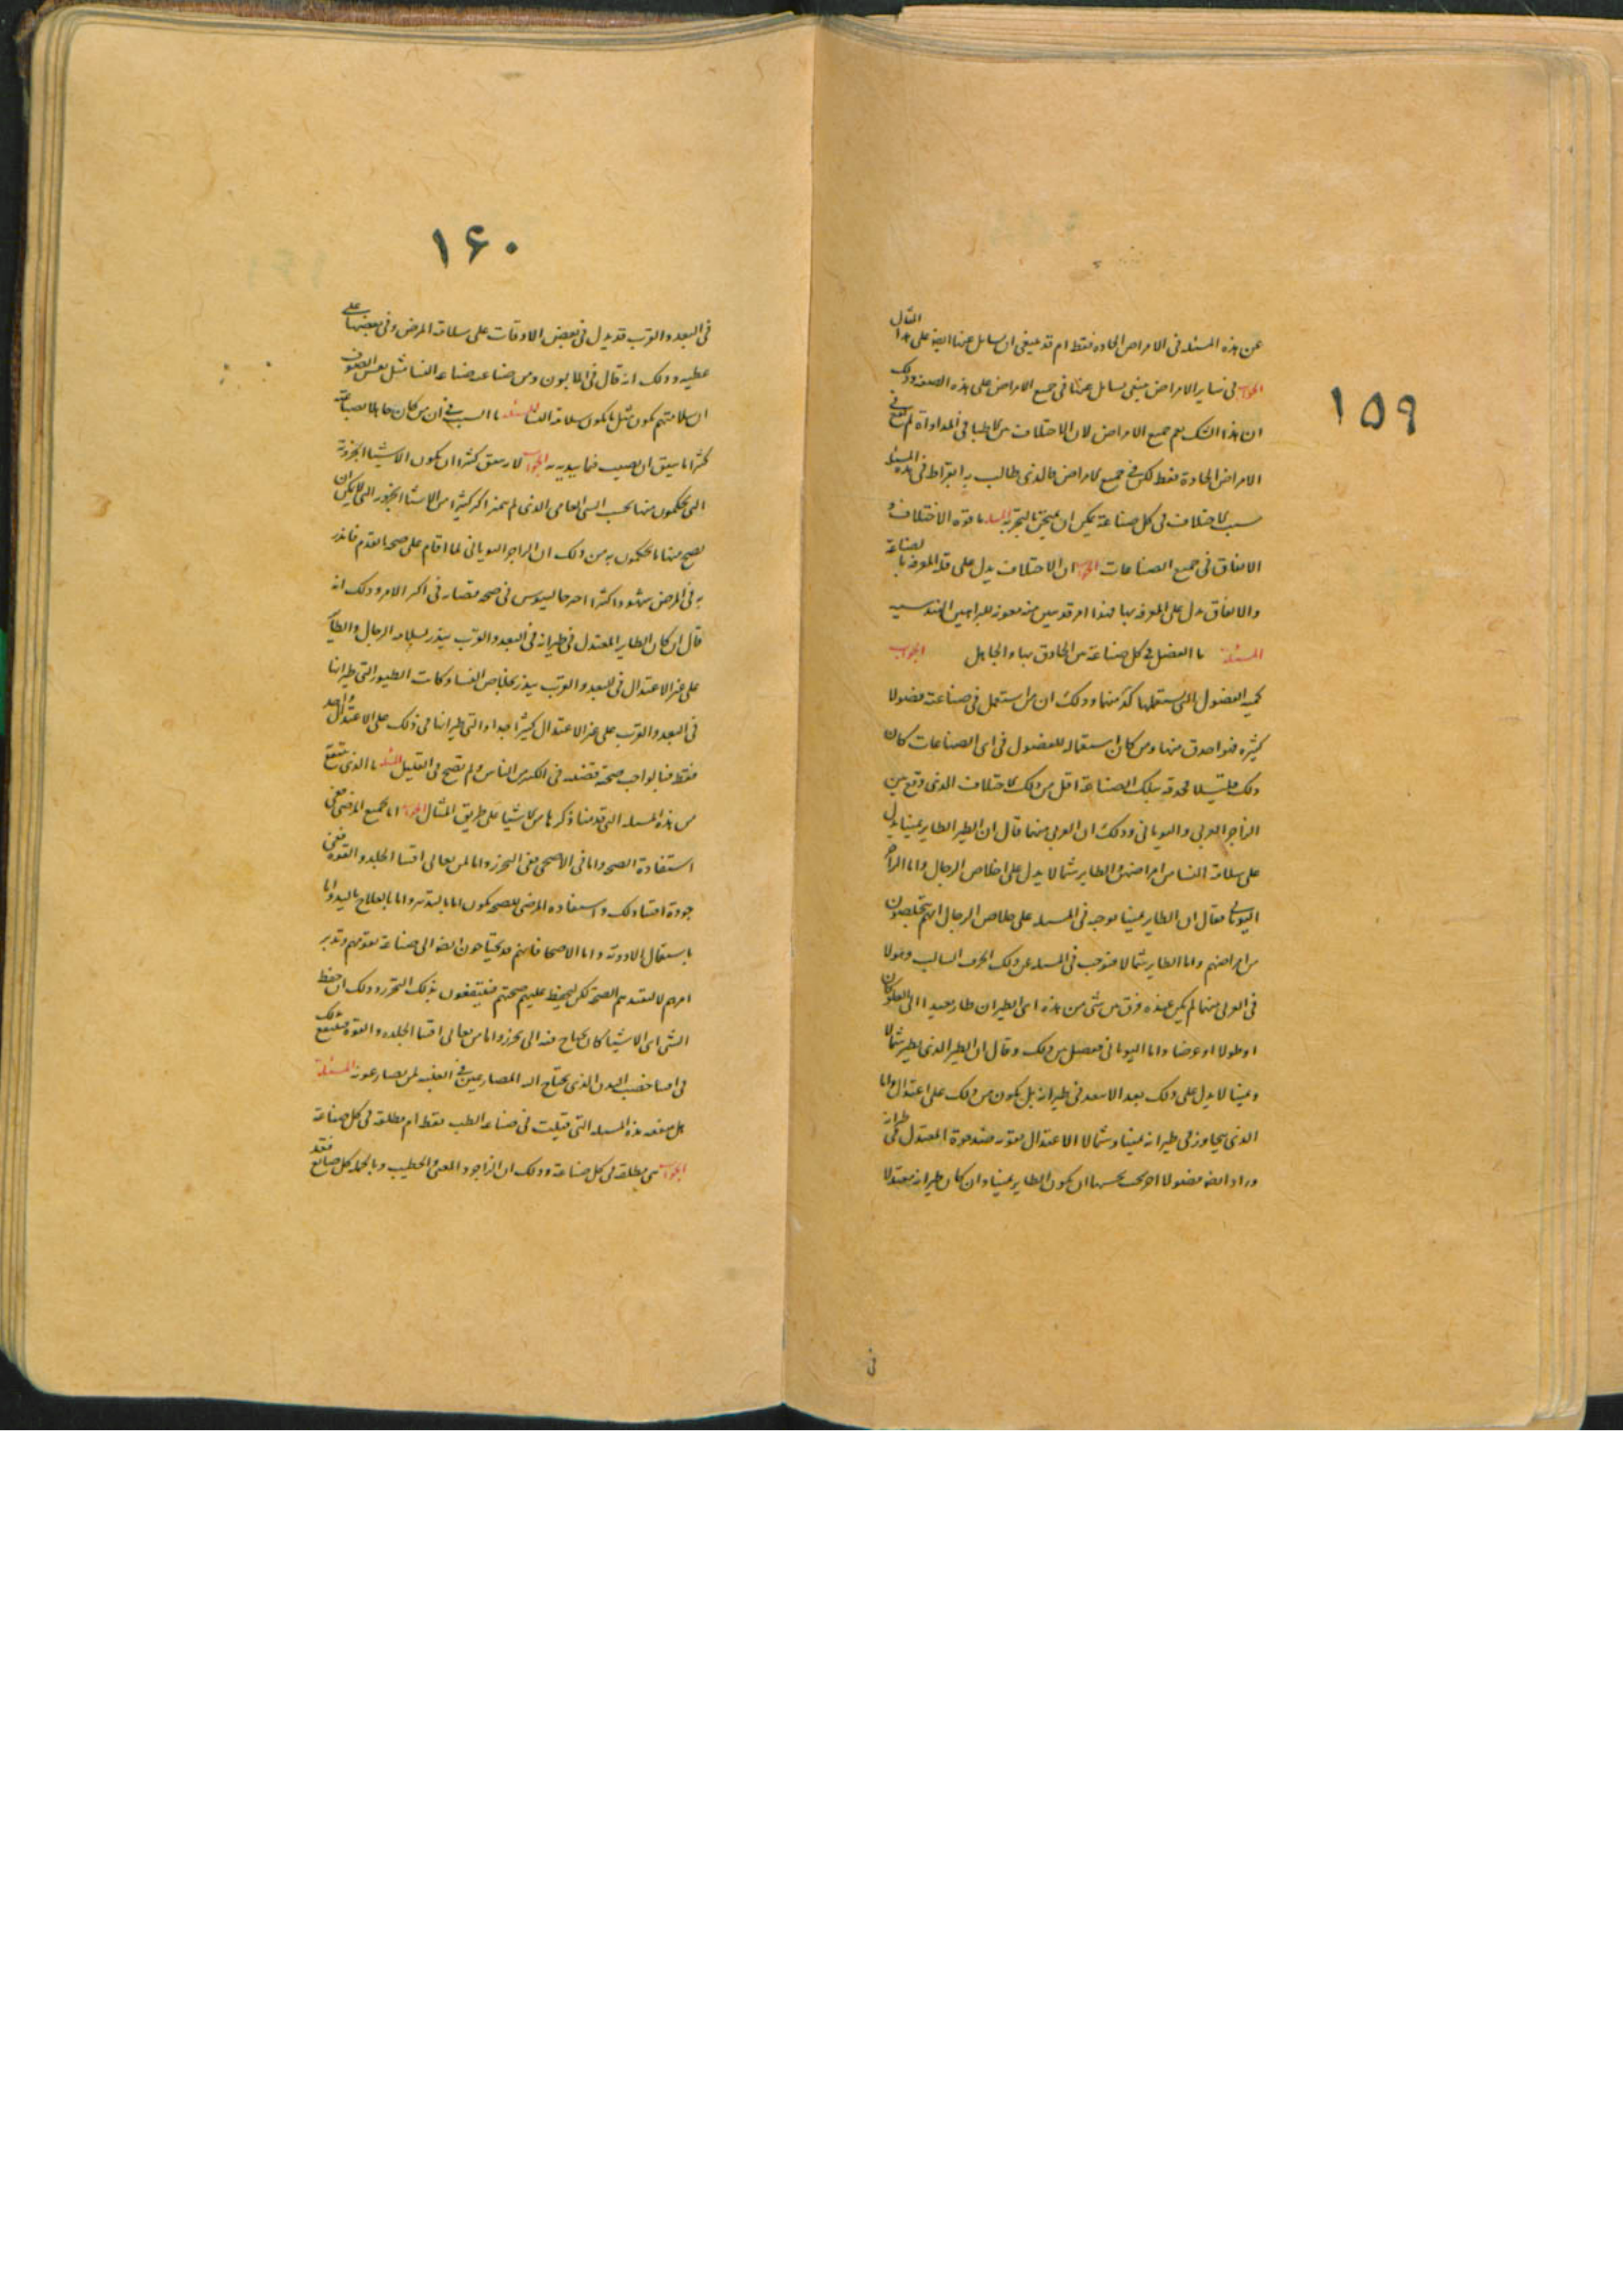 ١٥٩
عن هذه المسئله فى الامراض الحاده فقط ام قد ينبغى ان يسايل عنها ايضا على هذا المثال
الجواب فى ساير الامراض ينبغى يسايل عنها فى جميع الامراض على هذه الصفه وذلك
ان هذا الشك يعم جميع الامراض لان الاختلاف من الاطبا فى المداواة لم يقع فى
الامراض الحادة فقط لكن فى جميع الامراض فالذى يطالب به ابقراط فى هذه المسئله
سبب الاختلاف فى كل صناعة يمكن ان يمتحن بالتجربه المسله ما قوة الاختلاف و
الاتفاق فى جميع الصناعات الجواب ان الاختلاف يدل على قلة المعرفه بالصناعة
والاتفاق يدل على المعرفه بها فهذا امر قد بين منه للبراهين الهندسيه
المسئلة ما الفضل فى كل صناعة من الحاذق بها والجاهل الجواب
كميه الفضول التى يستعملها كل منهما وذلك ان من استعمل فى صناعته فضولا
كثيره فهو احذق منها ومن كان استعماله للفضول فى اى الصناعات كان
ذلك قليلا فحذقه بتلك الصناعة اقل من ذلك الاختلاف الذى وقع بين
الزاجر العربى واليونانى وذلك ان العربى منهما قال ان الطير الطاير يمينا يدل
على سلامة النسا من امراضهن والطاير شمالا يدل على خلاص الرجال واما الزاجر
اليونانى فقال ان الطاير يمينا يوجب فى المسله على خلاص الرجال انهم يتخلصون
من امراضهم واما الطاير شمالا فيوجب فى المسله عن ذلك الحرف السالب وهولا
فى العربى منهما لم يكن عنده فرق من شى من هذه اى الطيران طار بعيدا الى العلو كان
او طولا او عرضا واما اليونانى فيفصل بين ذلك وقال ان الطير الذى يطير شمالا
ويمينا لا يدل على ذلك بعد الا يبعد فى طيرانه بل يكون من ذلك على اعتدال واما
الذى يجاوز فى طيرانه يمينا وشمالا الاعتدال فقوته ضد قوة المعتدل فى طيرانه
وزاد ايضا فضولا اخر بحث بحسبها ان يكون الطاير يمينا وان كان طيرانه معتدلا
فى
١۶٠
فى البعد والقرب قد يدل فى بعض الاوقات على سلامة المرض وفى بعضها على
عطبه وذلك انه قال فى الذابون ومن صناعته صناعه النسا مثل
ان سلامتهم يكون مثل ما يكون سلامة النسا المسئله ما السبب فى ان من كان جاهلا بصناعة
كثيرا ما يتفق ان يصيب فيما يدبره الجواب لانه يتفق كثيرا ان يكون الاشيا الجزوية
التى يحكمون منها بحسب الشى العامى الذى لم يميز اكثر كثيرا من الاشيا الجزويه التى لا يمكن ان
يصح منها ما يحكمون به من ذلك ان الزاجر اليونانى لما اقام على صحه ما تقدم فانذر
به فى المرض شهودا كثيرا احد جالينوس فى صحه قصار فى اكثر الامر وذلك انه
قال ان كان الطاير المعتدل فى طيرانه فى البعد والقرب ينذر بسلامه الرجال والطاير
على غير الاعتدال فى البعد والقرب ينذر بخلاص النسا وكانت الطيور التى طيرانها
فى البعد والقرب على غير الاعتدال كثيرا جدا والتى طيرانها فى ذلك على الاعتدال واحد
فقط فبالواجب صحة قضيته فى الكثير من الناس ولم تصح فى القليل المسله ما الذى ينتفع
من هذه المسله التى قدمنا ذكرها من الاشيا على طريق المثال الجواب اما لجميع المرضى ففى
استفادة الصحه واما فى الاصحى ففى التحرز واما لمن يعانى اقتنا الجلد والقوه ففى
جودة اقتنا ذلك واستفاده المرضى للصحه يكون اما بالتدبير واما بالعلاج باليد واما
باستعمال الادوية واما الاصحا فانهم قد يحتاجون ايضا الى صناعة تقومهم وتدبر
امرهم لا لتفيدهم الصحة لكن ليحفظ عليهم صحتهم فينتفعون بذلك التحرز وذلك ان حفظ
الشى اى الاشيا كان يحتاج فيه الى تحرز واما من يعانى اقتنا الجلده والقوة فينتفع بذلك
فى اقتنا خصب البدن الذى يحتاج اليه المصارعين فى الغلبه لمن يصارعونه المسئلة
هل منفعه هذه المسله التى قيلت فى صناعه الطب فقط ام مطلقة فى كل صناعة
الجواب هى مطلقة فى كل صناعة وذلك ان الزاجر والمغنى والخطيب وبالجمله كل صانع فقد